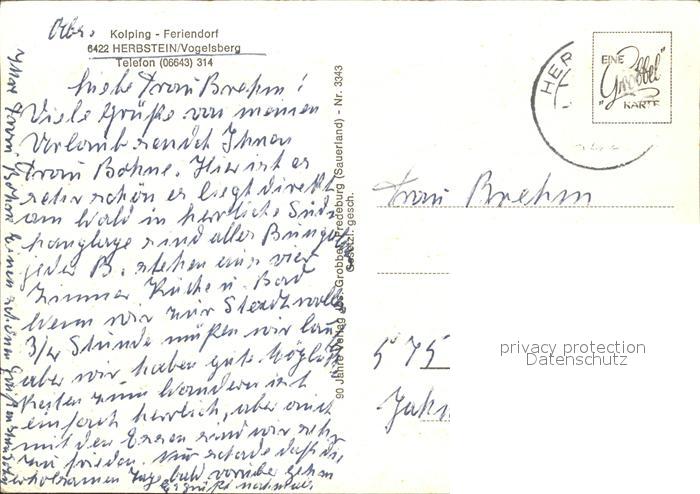 Abs.
Kolping - Feriendorf
6422 HERBSTEIN/Vogelsberg
Telefon (06643) 314
Liebe Frau Brehm!
Viele Grüße von meinem
Urlaub sendet Ihnen
Frau Böhne. Hier ist es
sehr schön es liegt direkt
am Wald in herrliche Süd-
hanglage sind alles Bungal.
jeder B. stehen aus vier
Zimmer Küche u. Bad
Wenn wir zur Stadt wollen
3/4 Stunde müßen wir lauf.
aber wir haben gute Möglich
keiten zum Wandern ist
einfach herrlich, aber auch
mit dem Essen sind wir sehr
zufrieden. Nur schade daß die
erholsamen Tage bald vorüber gehen
Grüße nochmals
Frau Böhne einen schönen
90 Jahre Verlag Jos. Grobbel, Fredeburg (Sauerland) - Nr. 3343
Gesetzl. gesch.
HER
EINE
"Grobbel"
KARTE
Frau Brehm
575
Jahn
privacy protection
Datenschutz